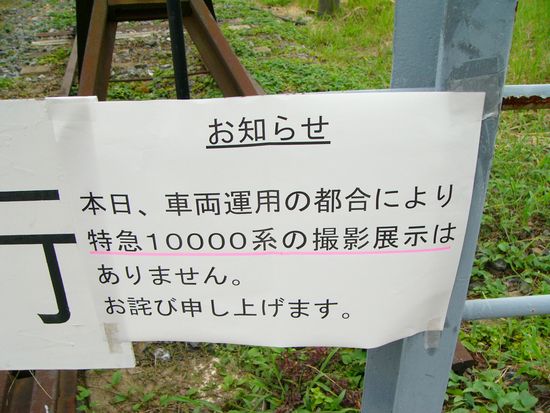 お知らせ
本日、車両運用の都合により
特急10000系の撮影展示は
ありません。
お詫び申し上げます。